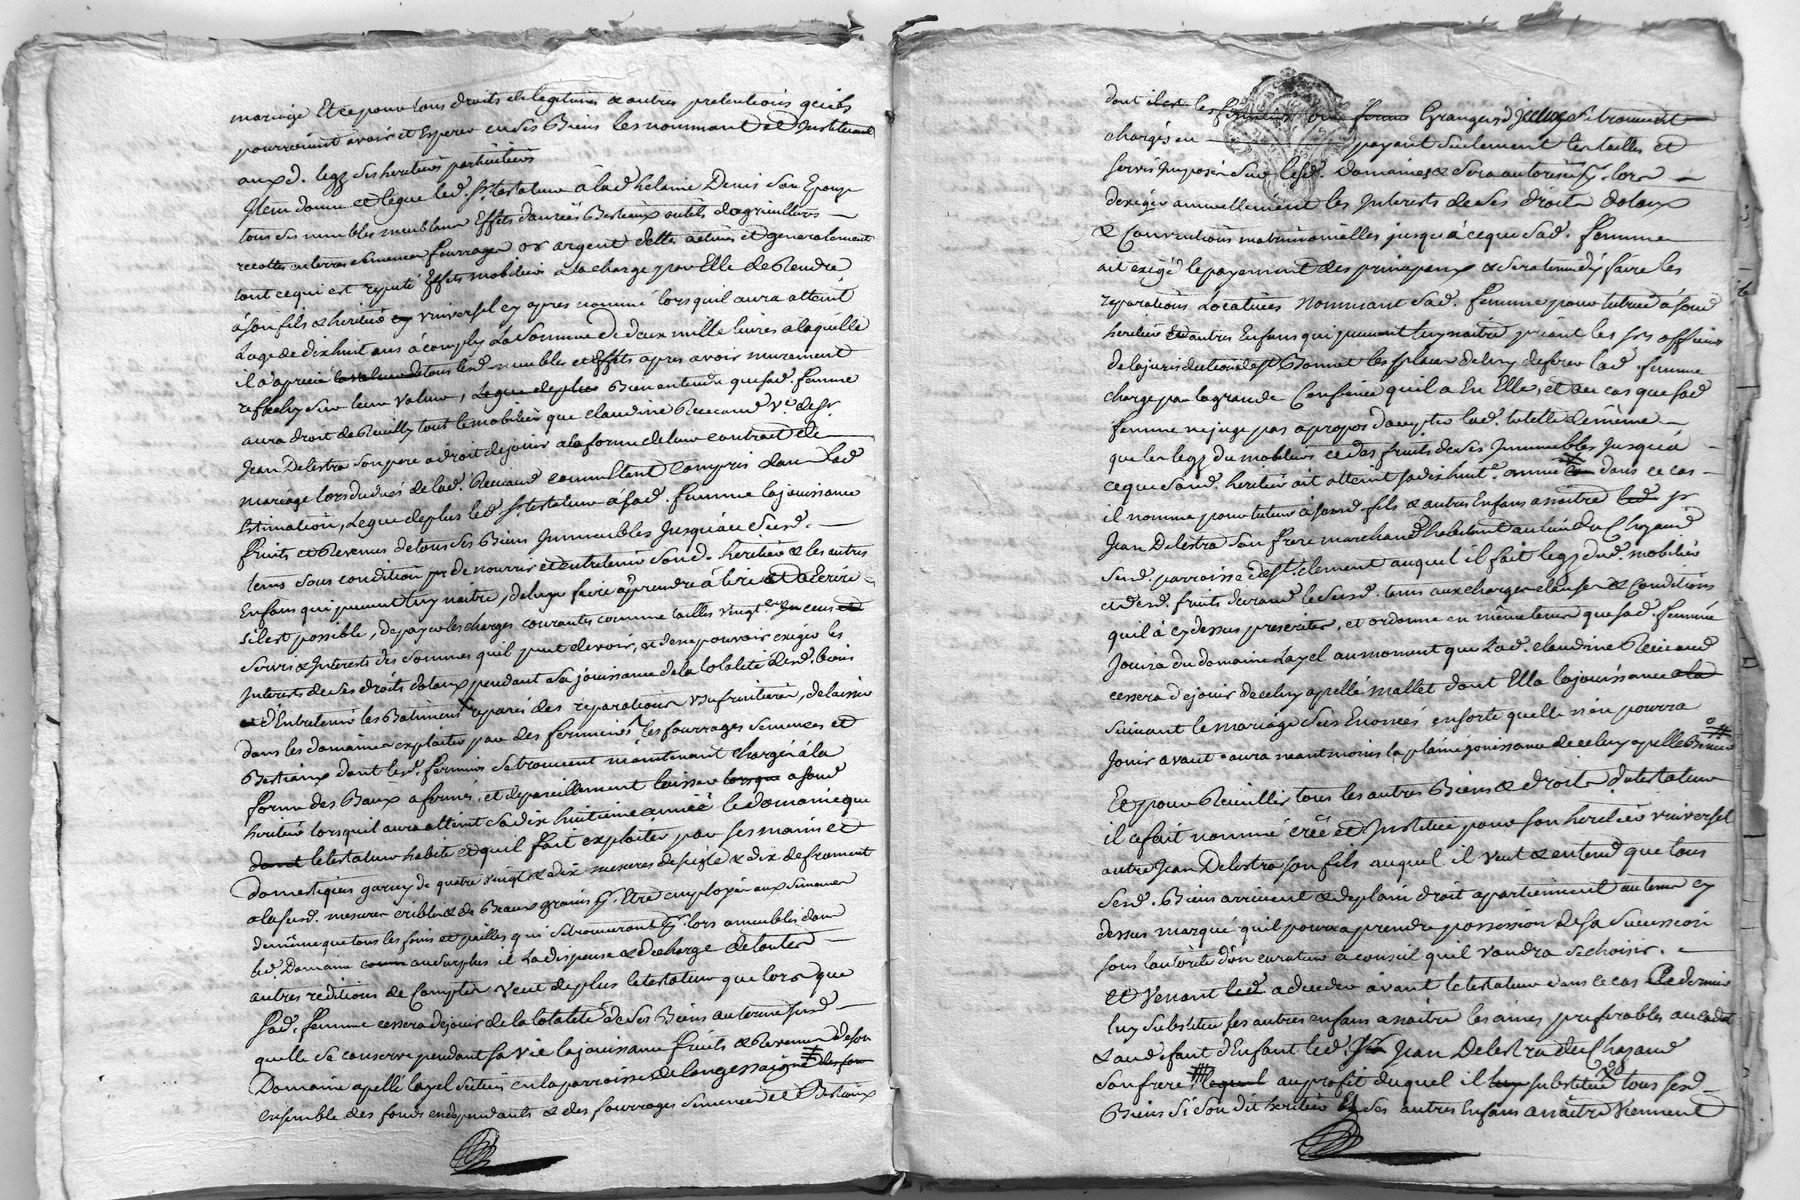 mariage Et ce pour tous droits de legitime & autres pretentions qu'ils
pourroient avoir et Esperer en ses Biens les nommant et Instituant
auxd. legz ses heritiers particuliers
Item donne et legue led. sr. testateur à lad helaine Denis son Epouse
tous ses meubles meublans Effets danrées Bestiaux outils d'agriculture
recoltes en terre semences fourrages or argent dettes actives et generalement
tout ce qui est reputé Effets mobiliers a la charge par Elle de Rendre
à son fils & heritier universel cy apres nommé lorsquil aura atteint
l'age de dix huit ans acomplis La Somme de deux mille livres a laquelle
il à aprecié tous lesd. meubles et Effets apres avoir murement
reflechy sur leur valeur, Bien entendu que sad. femme
aura droit de Reuillir tout le mobilier que claudine Reverand ve. de sr.
Jean Delestra son pere a droit de jouir a la forme de leur contrat de
mariage lors du deces de lad. Reverand compris dans lad
Estimation, Legue de plus led. sr. testateur à sad. femme la jouissance
fruits et Revenus de tous ses Biens Immeubles Jusqu'au susd.
tems sous condition de nourrir et entretenir sond. heritier & les autres
Enfans qui peuvent luy naitre, de luy faire aprendre à lire et à Ecrire
s'il est possible, de payer les charges courantes comme tailles vingt.es Incens
servis & Interests des sommes quil peut devoir, et de ne pouvoir exiger les
Interests de ses droits dotaux pendant sa jouissance de la totalité desd. biens
d'Entretenir les Batimens reparés des reparations usufruitieres, de laisser
dans les domaines exploites par des fermiers les fourrages semences et
Bestiaux dont lesd. fermiers se trouvent maintenant chargés à la
forme des Baux a fermes, et de pareillement laisser a sond
heritier lorsquil aura atteint sa dix huitieme année le domaine que
le testateur habite et quil fait exploiter par ses mains et
domestiques garny de quatre vingt & dix mesures de seigle & dix de froment
a la susd. mesure cribles & de Beaux grains pr. Etre employés aux semences
de même que tous les foins et pailles qui se trouveront pr. lors
led. Domaine au surplus il La dispense & decharge de toutes
autres redditions de Comptes veut de plus le testateur que lors que
sad. femme cessera de jouir de la totalité de ses Biens au terme susd.
quelle se conserve pendant sa vie la jouissance fruits & Revenus de son
Domaine apellé Layel scitué en la parroisse de langessaigne
ensemble des fonds en dependants & des fourrages semences et Bestiaux
dont Grangers d'jceluy se trouveront
chargés en payant seulement les tailles et
servis Imposés sur lesd. Domaines & sera autorisée pr. lors
d'exiger annuellement les Interests de ses droits dotaux
& Conventions matrimonielles jusqu'à ceque sad. femme
ait exigé le payement des principaux & sera tenue d'y faire les
reparations Locatives Nommant sad. femme pour tutrice à sond
heritier et autres Enfans qui peuvent luy naitre priant les srs officiers
de la jurisdiction de st Bonnet les places de luy deferer lad. femme
charge par la grande Confiance quil a En Elle, et au cas que sad
femme ne juge pas a propos d'accepter lad. tutelle de même
que les legz du mobilier et des fruits de ses Immeubles jusqu'à
ceque sond. heritier ait atteint sa dix huit.e année dans ce cas
il nomme pour tuteur à sond fils & autres Enfans a naitre sr
Jean Delestra son frere marchand habitant au lieu du Chozaud
susd. parroisse de st. clement auquel il fait legz dud. mobilier
et desd. fruits durant le susd. tems aux charges clauses & Conditions
quil à cy dessus prescrites, et ordonne en même tems que sad. femme
Jouira du domaine Layel au moment que Lad. claudine Reverand
cessera de jouir de celuy apellé mallet dont Elle la jouissance
suivant le mariage sus Enoncé, ensorte quelle n'en pourra
Jouir avant aura neantmoins la pleine jouissance de celuy apellé
Et pour Reuillir tous les autres Biens & droits du testateur
il a fait nommé créé et Institué pour son heritier universel
autre Jean Delestra son fils auquel il veut & entend que tous
sesd. Biens arrivent & de plain droit apartiennent au tems cy
dessus marqué quil pourra prendre possession de sa succession
sous l'autorité d'un curateur à conseil quil voudra se choisir.
Et Venant a deceder avant le testateur dans ce cas Ce dernier
luy substitue ses autres enfans a naitre les ainés preferables au cadet
& au defaut d'Enfant led. Jean Delestra du Chozaud
son frere au profit duquel il substitue tous sesd
Biens si son dit heritier & ses autres Enfans a naitre viennent